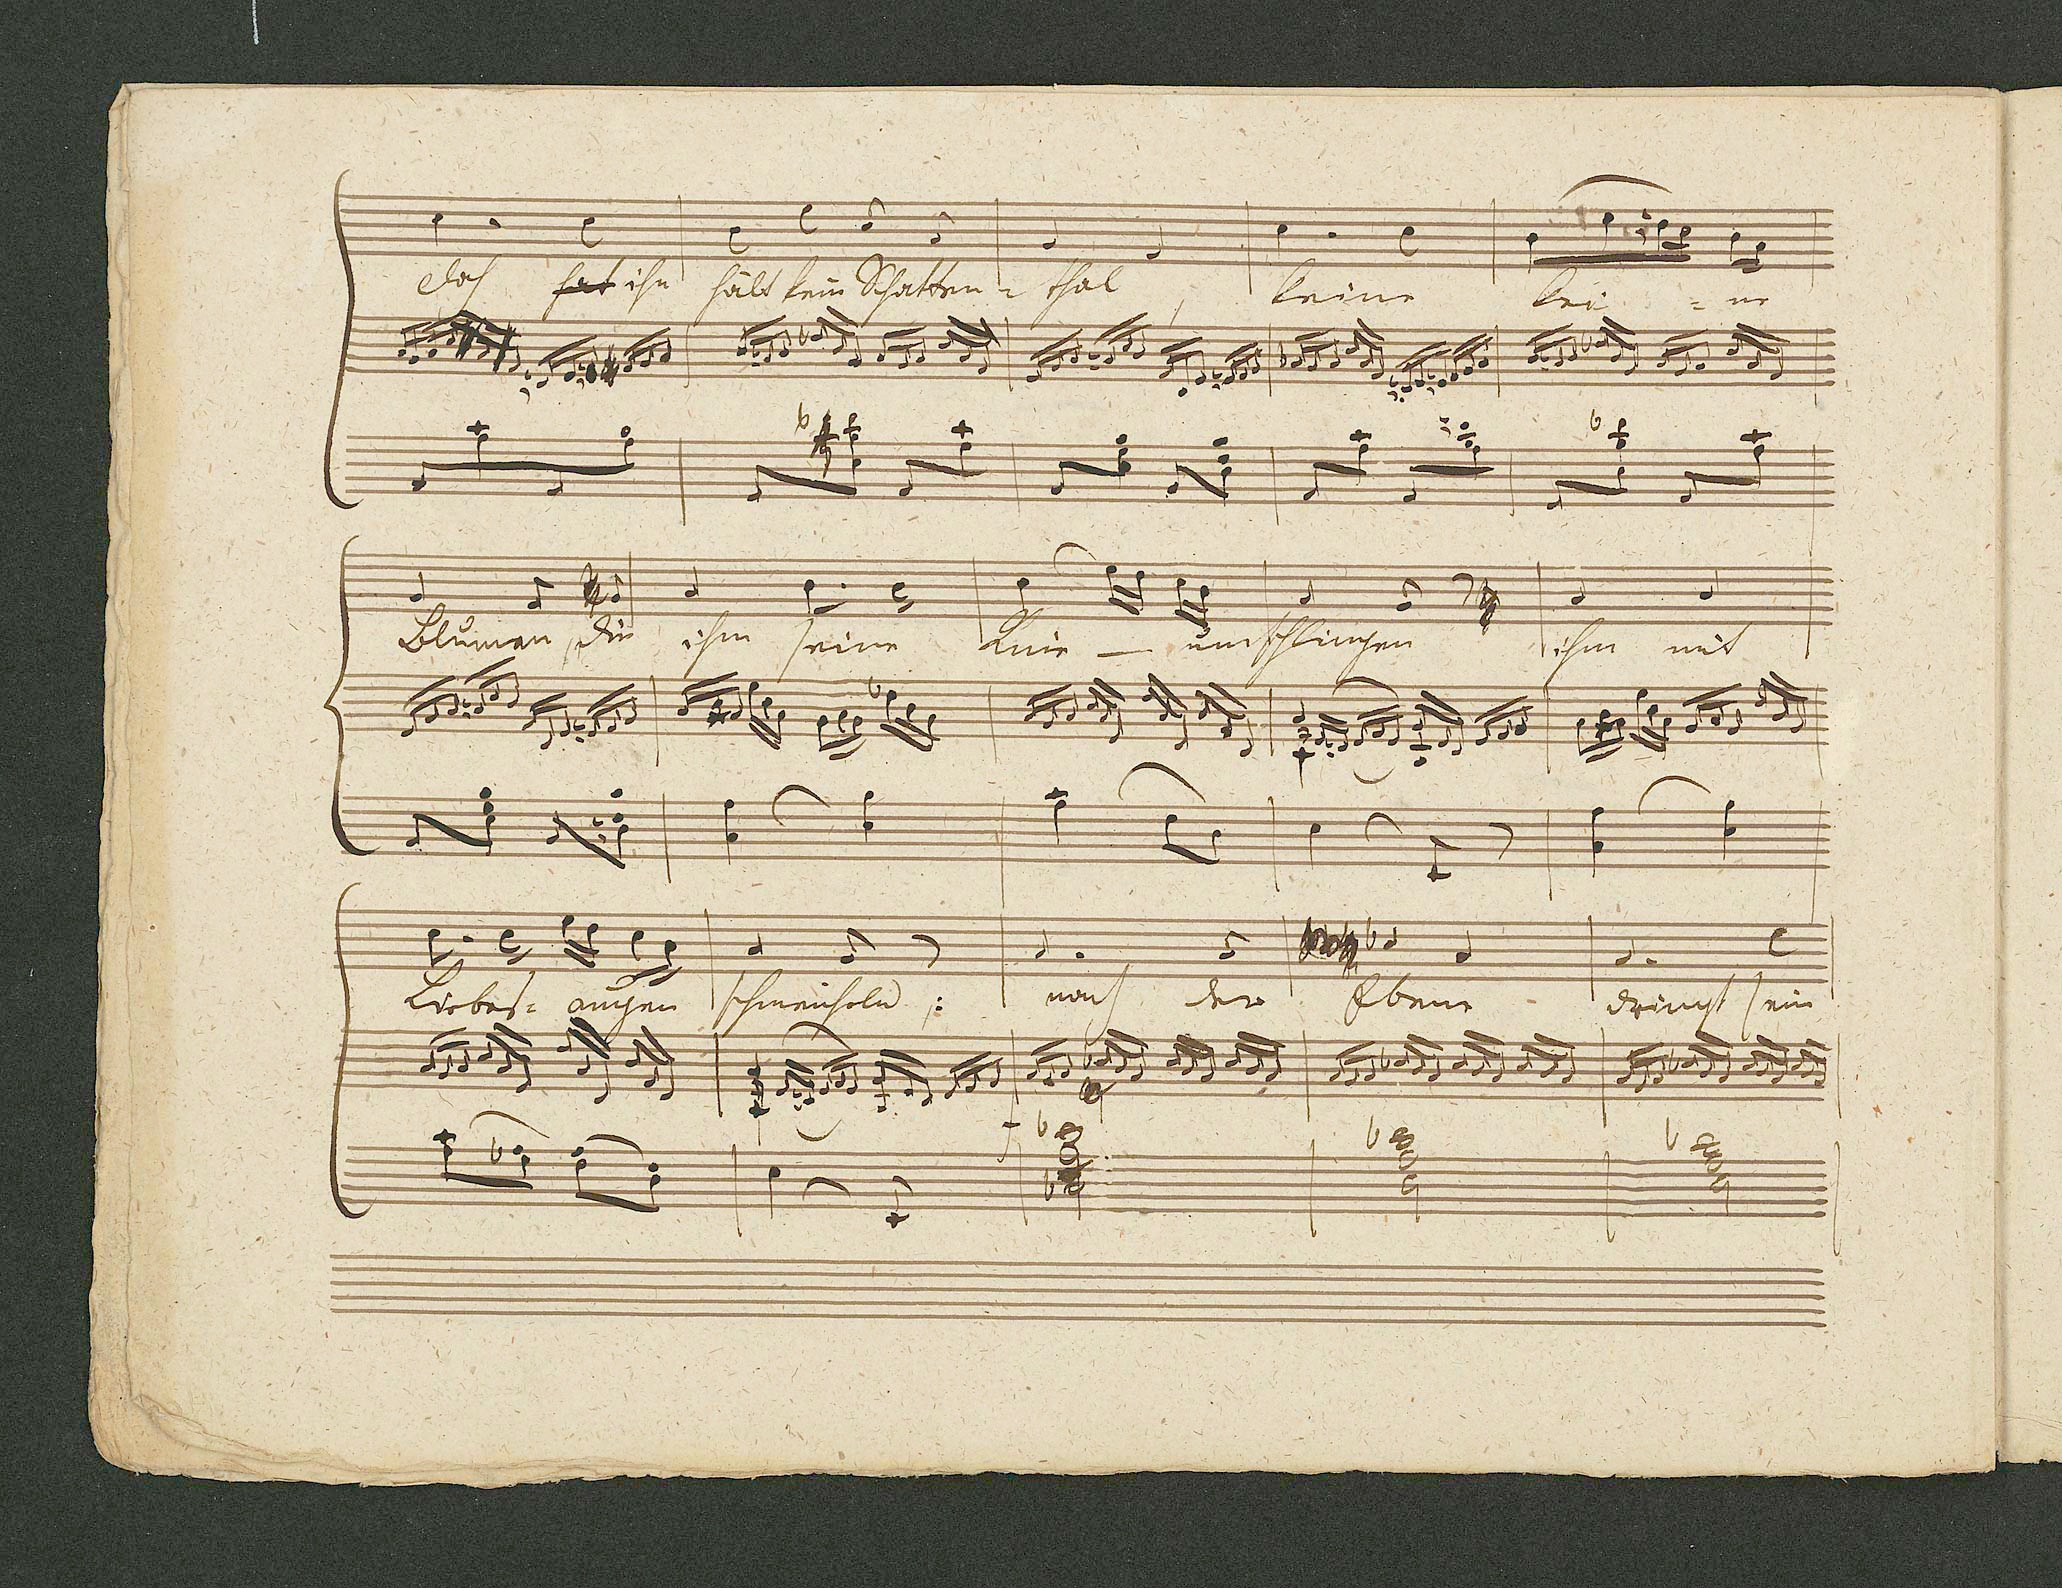 doch hat ihn hält kein Schatten = thal, keine kei = ne
Blumen, die ihm seine Knie — umschlingen ihm mit
Liebes= augen schmeicheln,: nach der Ebene dringt sein